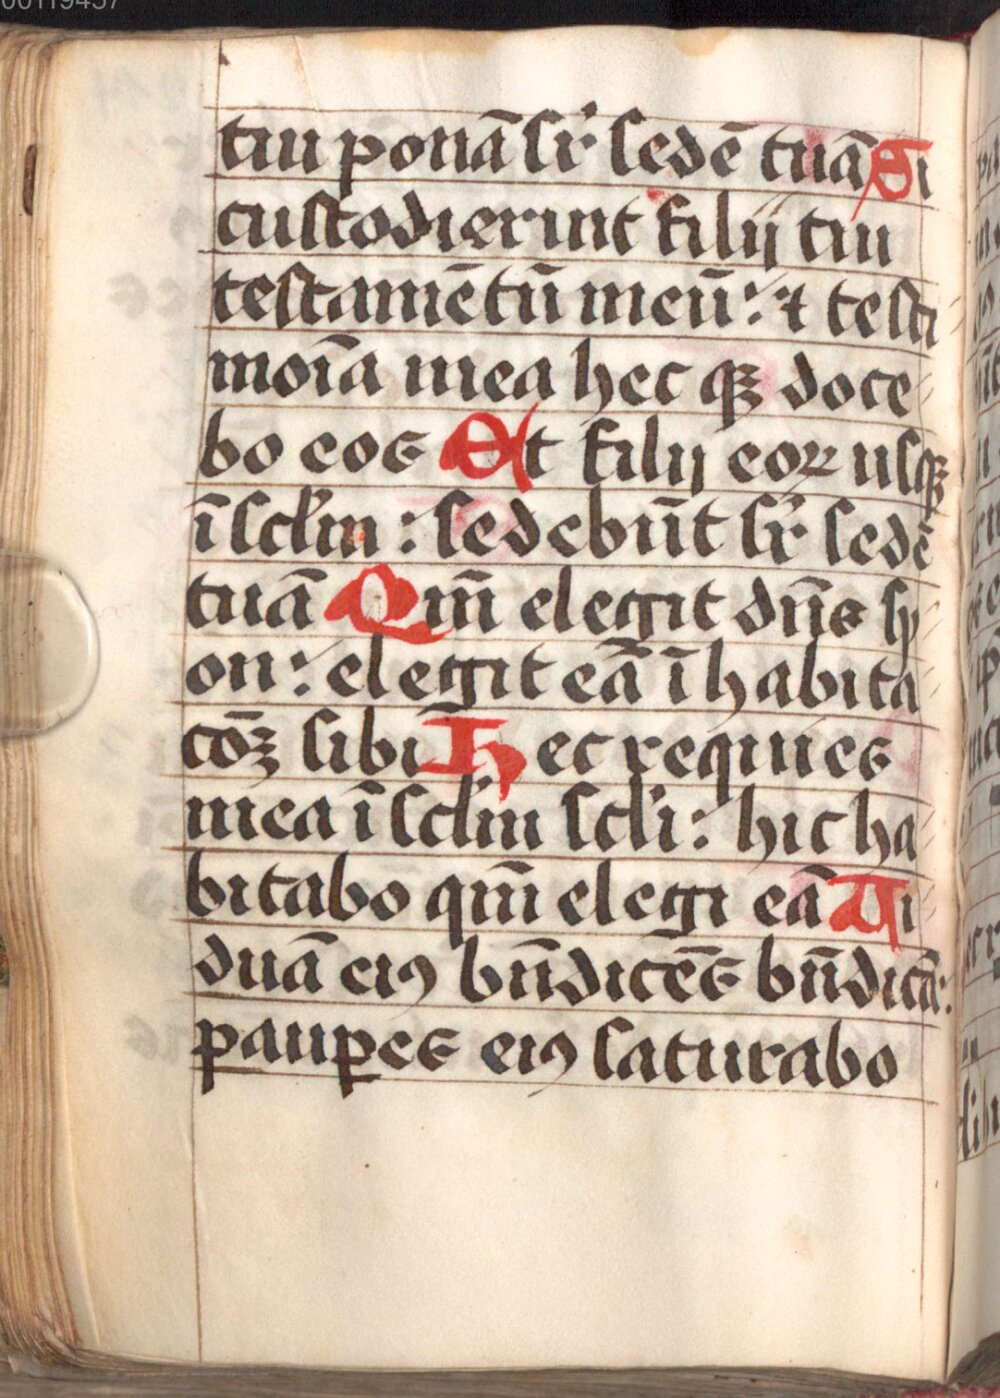 00119457
tui ponā sr̄ sedē tuā Si
custodierint filij tui
testamētū meū : ⁊ testi
moīa mea hec qꝫ doce
bo eos Et filij eoꝝ usqꝫ
ī sclm̄ : sedebūt sr̄ sedē
tuā Qm̄ elegit dn̄s sy
on : elegit eā ī habita
cōꝫ sibi Hec requies
mea ī sclm̄ scl̄i : hic ha
bitabo qm̄ elegi eā Ui
duā eiꝰ bn̄dicēs bn̄dicā :
pauꝑes eiꝰ saturabo